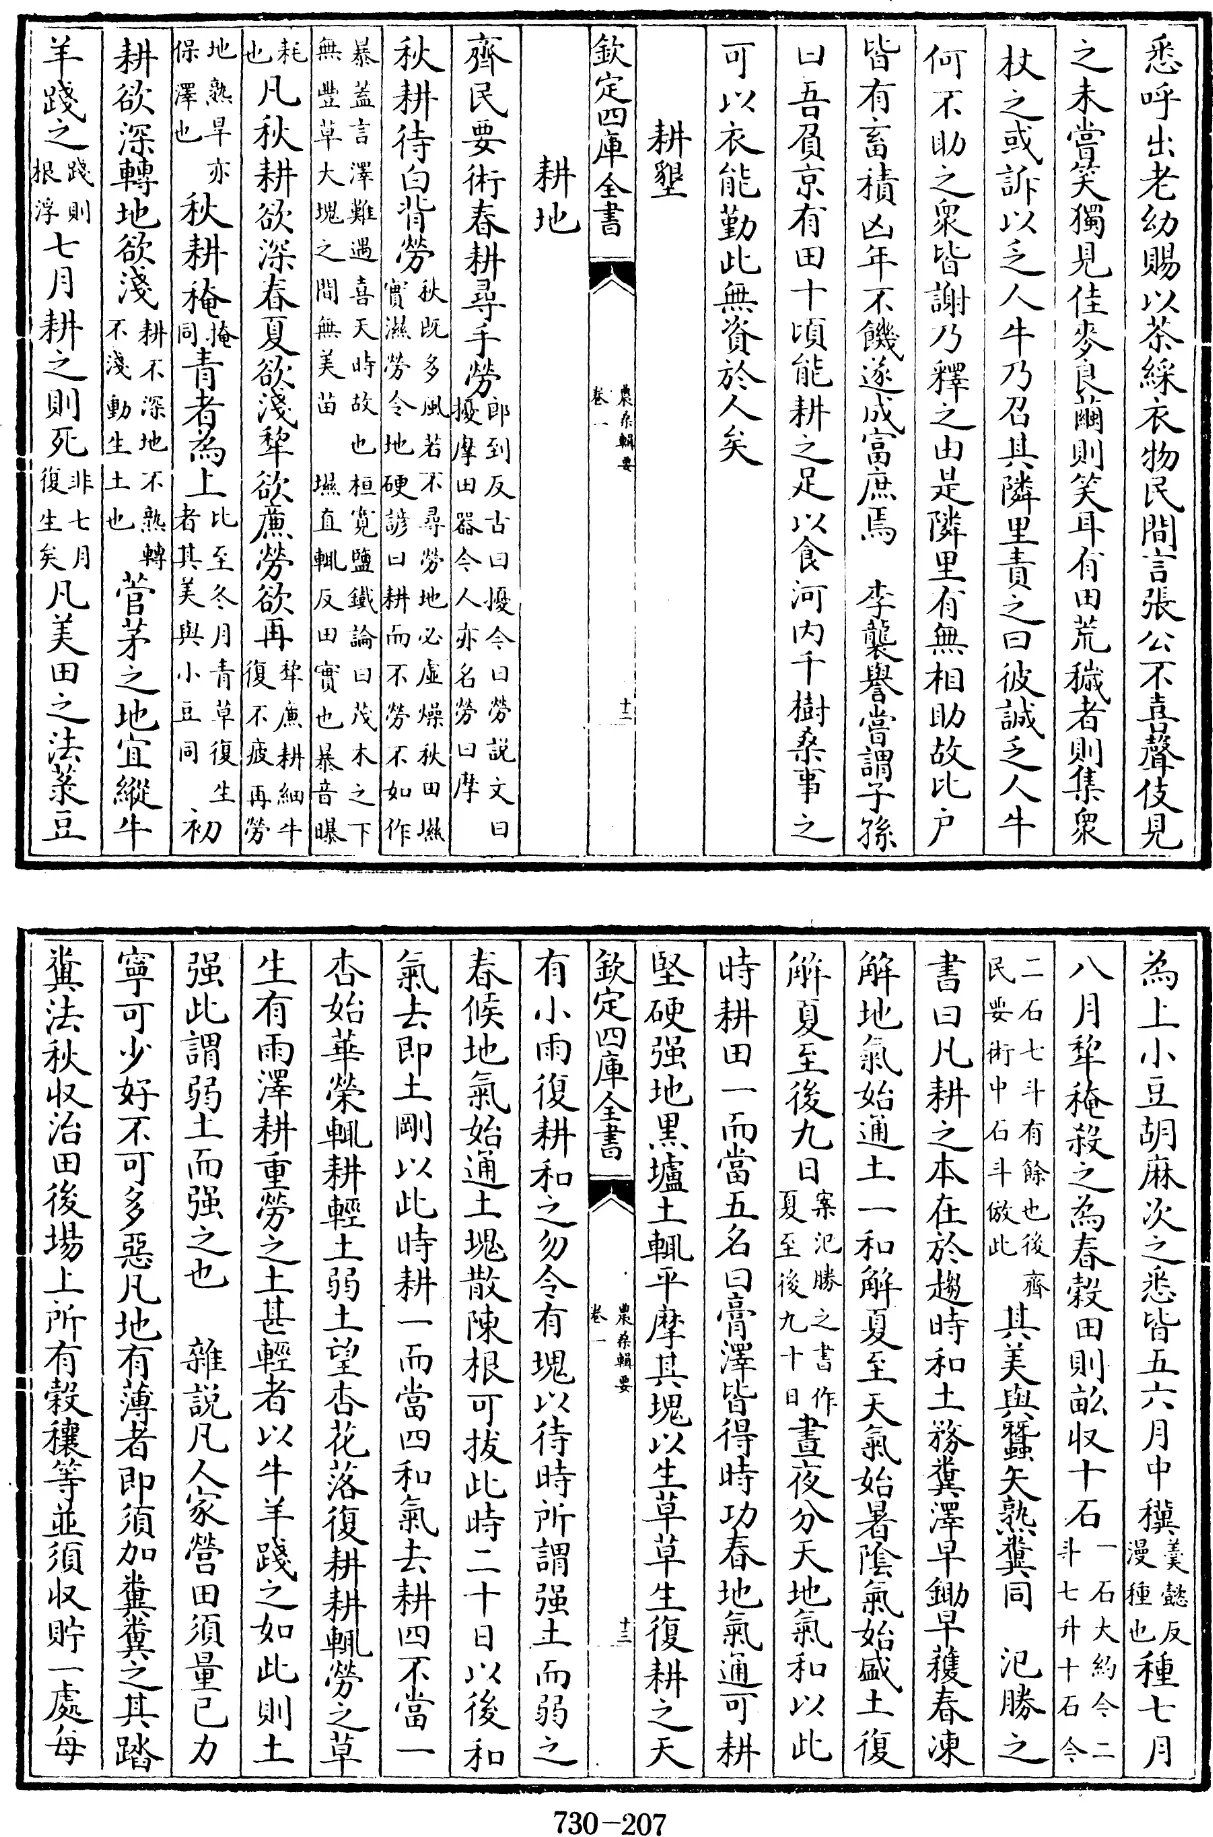 悉呼出老幼賜以茶綵衣物民間言張公不喜聲伎見
之未嘗笑獨見佳麥良繭則笑耳有田荒穢者則集衆
杖之或訴以乏人牛乃召其隣里責之曰彼誠乏人牛
何不助之衆皆謝乃釋之由是隣里有無相助故比户
皆有畜積凶年不饑遂成富庶焉　李襲譽嘗謂子孫
曰吾負京有田十頃能耕之足以食河内千樹桑事之
可以衣能勤此無資於人矣
耕墾
欽定四庫全書
農桑輯要
卷一
十二
耕地
齊民要術春耕尋手勞郎到反古曰擾今曰勞説文曰擾摩田器今人亦名勞曰摩
秋耕待白背勞秋既多風若不尋勞地必虛燥秋田㙷實濕勞令地硬諺曰耕而不勞不如作
暴蓋言澤難遇喜天時故也桓寬鹽鐵論曰茂木之下無豐草大塊之間無美苗　㙷直輒反田實也暴音曝
耗也凡秋耕欲深春夏欲淺犂欲亷勞欲再犂亷耕細牛復不疲再勞
地熟旱亦保澤也秋耕䅖掩同青者為上比至冬月青草復生者其美與小豆同初
耕欲深轉地欲淺耕不深地不熟轉不淺動生土也菅茅之地宜縱牛
羊踐之踐則根浮七月耕之則死非七月復生矣凡美田之法菉豆
為上小豆胡麻次之悉皆五六月中穙羹懿反漫種也種七月
八月犂䅖殺之為春穀田則畝収十石一石大約今二斗七升十石今
二石七斗有餘也後齊民要術中石斗倣此其美與蠶矢熟糞同　氾勝之
書曰凡耕之本在於趨時和土務糞澤早鋤早穫春凍
解地氣始通土一和解夏至天氣始暑陰氣始盛土復
解夏至後九日案氾勝之書作夏至後九十日晝夜分天地氣和以此
時耕田一而當五名曰膏澤皆得時功春地氣通可耕
堅硬强地黑壚土輒平摩其塊以生草草生復耕之天
欽定四庫全書
農桑輯要
卷一
十三
有小雨復耕和之勿令有塊以待時所謂强土而弱之
春候地氣始通土塊散陳根可拔此時二十日以後和
氣去即土剛以此時耕一而當四和氣去耕四不當一
杏始華榮輒耕輕土弱土望杏花落復耕耕輒勞之草
生有雨澤耕重勞之土甚輕者以牛羊踐之如此則土
强此謂弱土而强之也　雜説凡人家營田須量已力
寧可少好不可多惡凡地有薄者即須加糞糞之其踏
糞法秋収治田後場上所有穀穰等並須収貯一處每
730-207